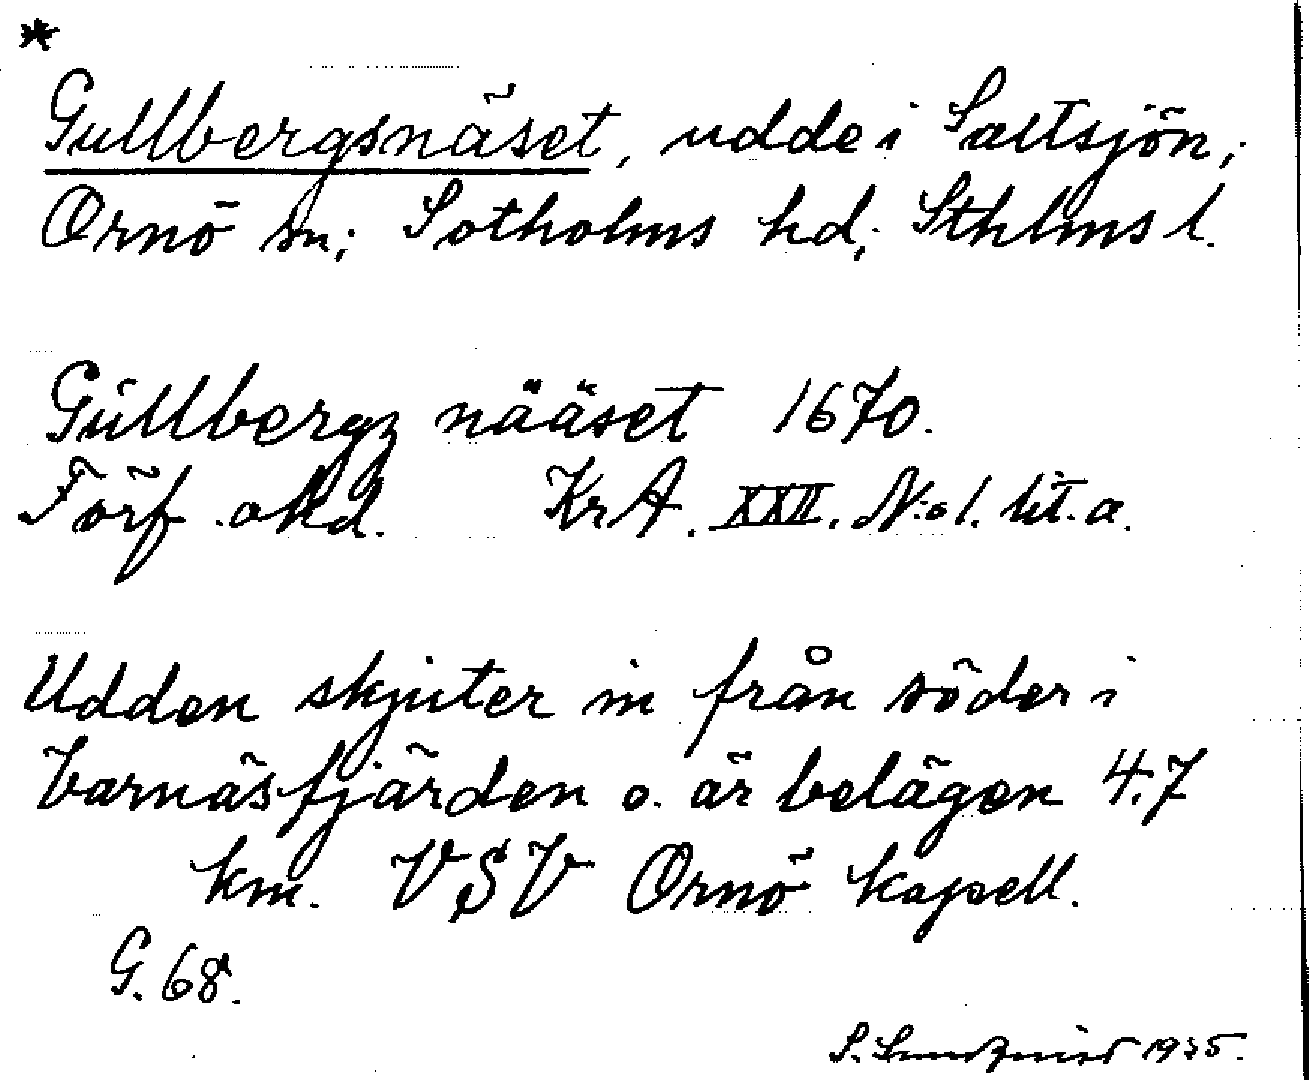 *
Gullbergsnäset, udde i Saltsjön;
Ornö sn; Sotholms hd; Sthlms l.
Gullbergz nääset 1670.
Förf. okd. KrA. XXII. N:o 1. lit. a.
Udden skjuter in från söder i
Varnäsfjärden o. är belägen 4.7
km. VSV Ornö kapell.
G. 68.
S. Lundqvist 1935.